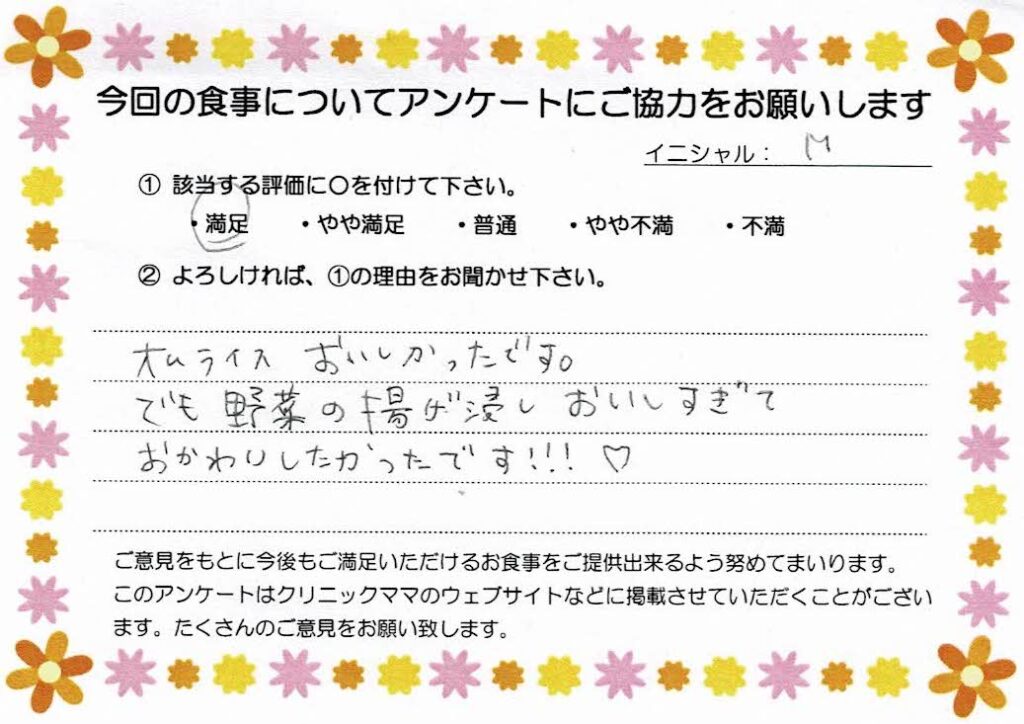 今回の食事についてアンケートにご協力をお願いします
イニシャル： M
① 該当する評価に〇を付けて下さい。
・満足 ・やや満足 ・普通 ・やや不満 ・不満
② よろしければ、①の理由をお聞かせ下さい。
オムライス おいしかったです。
でも 野菜の揚げ浸し おいしすぎて
おかわりしたかったです!!! ♡
ご意見をもとに今後もご満足いただけるお食事をご提供出来るよう努めてまいります。
このアンケートはクリニックママのウェブサイトなどに掲載させていただくことがござい
ます。たくさんのご意見をお願い致します。